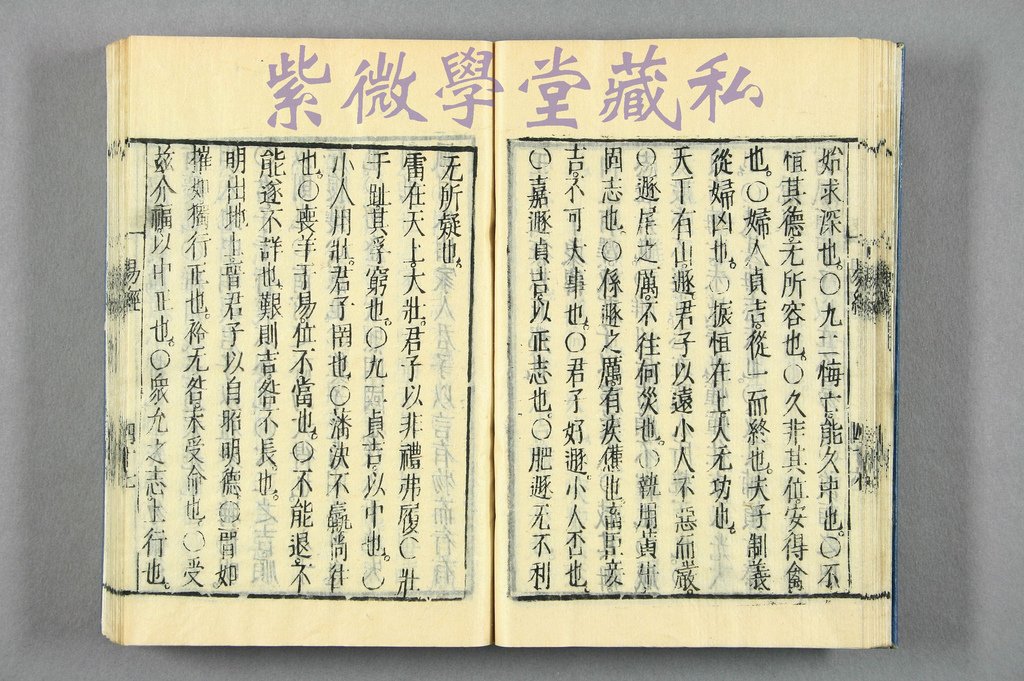 紫微學堂藏私
始求深也。○九二悔亡。能久中也。○不
恒其德。无所容也。○久非其位。安得禽
也。○婦人貞吉。從一而終也。夫子制義
從婦凶也。○振恒在上。大无功也。
天下有山。遯。君子以遠小人。不惡而嚴
○遯尾之厲。不往何災也。○執用黃牛
固志也。○係遯之厲。有疾憊也。畜臣妾
吉。不可大事也。○君子好遯。小人否也。
○嘉遯貞吉。以正志也。○肥遯无不利
无所疑也。
雷在天上。大壯。君子以非禮弗履。○壯
于趾。其孚窮也。○九二貞吉。以中也。○
小人用壯。君子罔也。○藩決不羸。尚往
也。○喪羊于易。位不當也。○不能退。不
能遂。不詳也。艱則吉。咎不長也。
明出地上。晉。君子以自昭明德。○晉如
摧如。獨行正也。裕无咎。未受命也。○受
茲介福。以中正也。○眾允之。志上行也。
易經